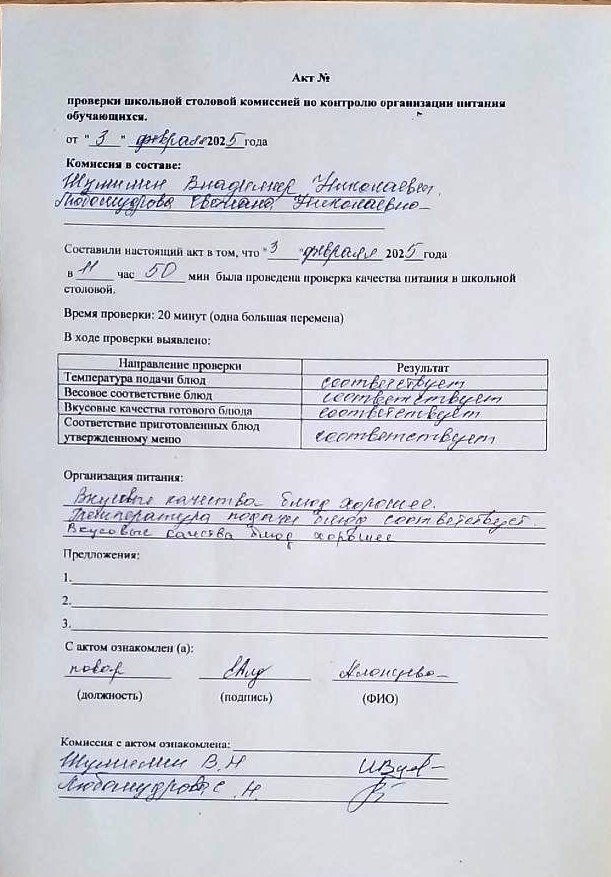 Акт №
проверки школьной столовой комиссией по контролю организации питания
обучающихся.
от "3" февраля 2025 года
Комиссия в составе:
Шумилин Владимир Николаевич.
Любомудрова Светлана Николаевна
Составили настоящий акт в том, что "3" февраля 2025 года
в 11 час 50 мин была проведена проверка качества питания в школьной
столовой.
Время проверки: 20 минут (одна большая перемена)
В ходе проверки выявлено:
Направление проверки Результат
Температура подачи блюд соответствует
Весовое соответствие блюд соответствует
Вкусовые качества готового блюда соответствует
Соответствие приготовленных блюд
утвержденному меню соответствует
Организация питания:
Вкусовые качества блюд хорошее.
Температура подачи блюд соответствует.
Вкусовые качества блюд хорошее
Предложения:
1.
2.
3.
С актом ознакомлен (а):
повар
(должность) (подпись) (ФИО)
Комиссия с актом ознакомлена:
Шумилин В.Н
Любомудрова С.Н.